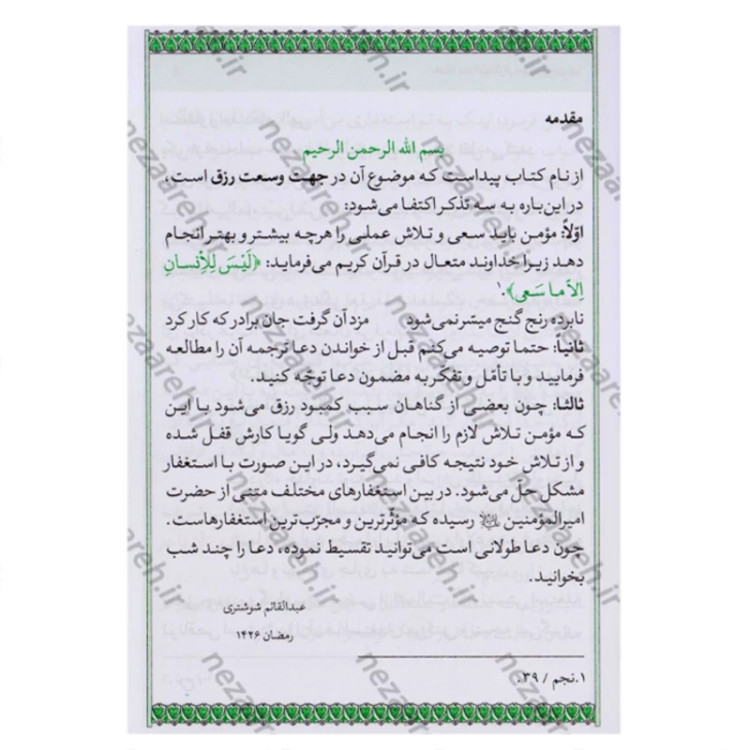 مقدمه
بسم الله الرحمن الرحیم
از نام کتاب پیداست که موضوع آن در جهت وسعت رزق است،
در این‌باره به سه تذکر اکتفا می‌شود:
اوّلاً: مؤمن باید سعی و تلاش عملی را هرچه بیشتر و بهتر انجام
دهد زیرا خداوند متعال در قرآن کریم می‌فرماید: ﴿لَيْسَ لِلْإِنسانِ
إِلاّ ما سَعى﴾.¹
نابرده رنج گنج میسّر نمی‌شود مزد آن گرفت جان برادر که کار کرد
ثانیاً: حتما توصیه می‌کنم قبل از خواندن دعا ترجمه آن را مطالعه
فرمایید و با تأمّل و تفکّر به مضمون دعا توجّه کنید.
ثالثا: چون بعضی از گناهان سبب کمبود رزق می‌شود با این
که مؤمن تلاش لازم را انجام می‌دهد ولی گویا کارش قفل شده
و از تلاش خود نتیجه کافی نمی‌گیرد، در این صورت با استغفار
مشکل حلّ می‌شود. در بین استغفارهای مختلف متنی از حضرت
امیرالمؤمنین علیه السلام رسیده که مؤثّرترین و مجرّب‌ترین استغفارهاست.
چون دعا طولانی است می‌توانید تقسیط نموده، دعا را چند شب
بخوانید.
عبدالقائم شوشتری
رمضان ۱۴۲۶
۱. نجم / ۳۹.
nezaareh.ir